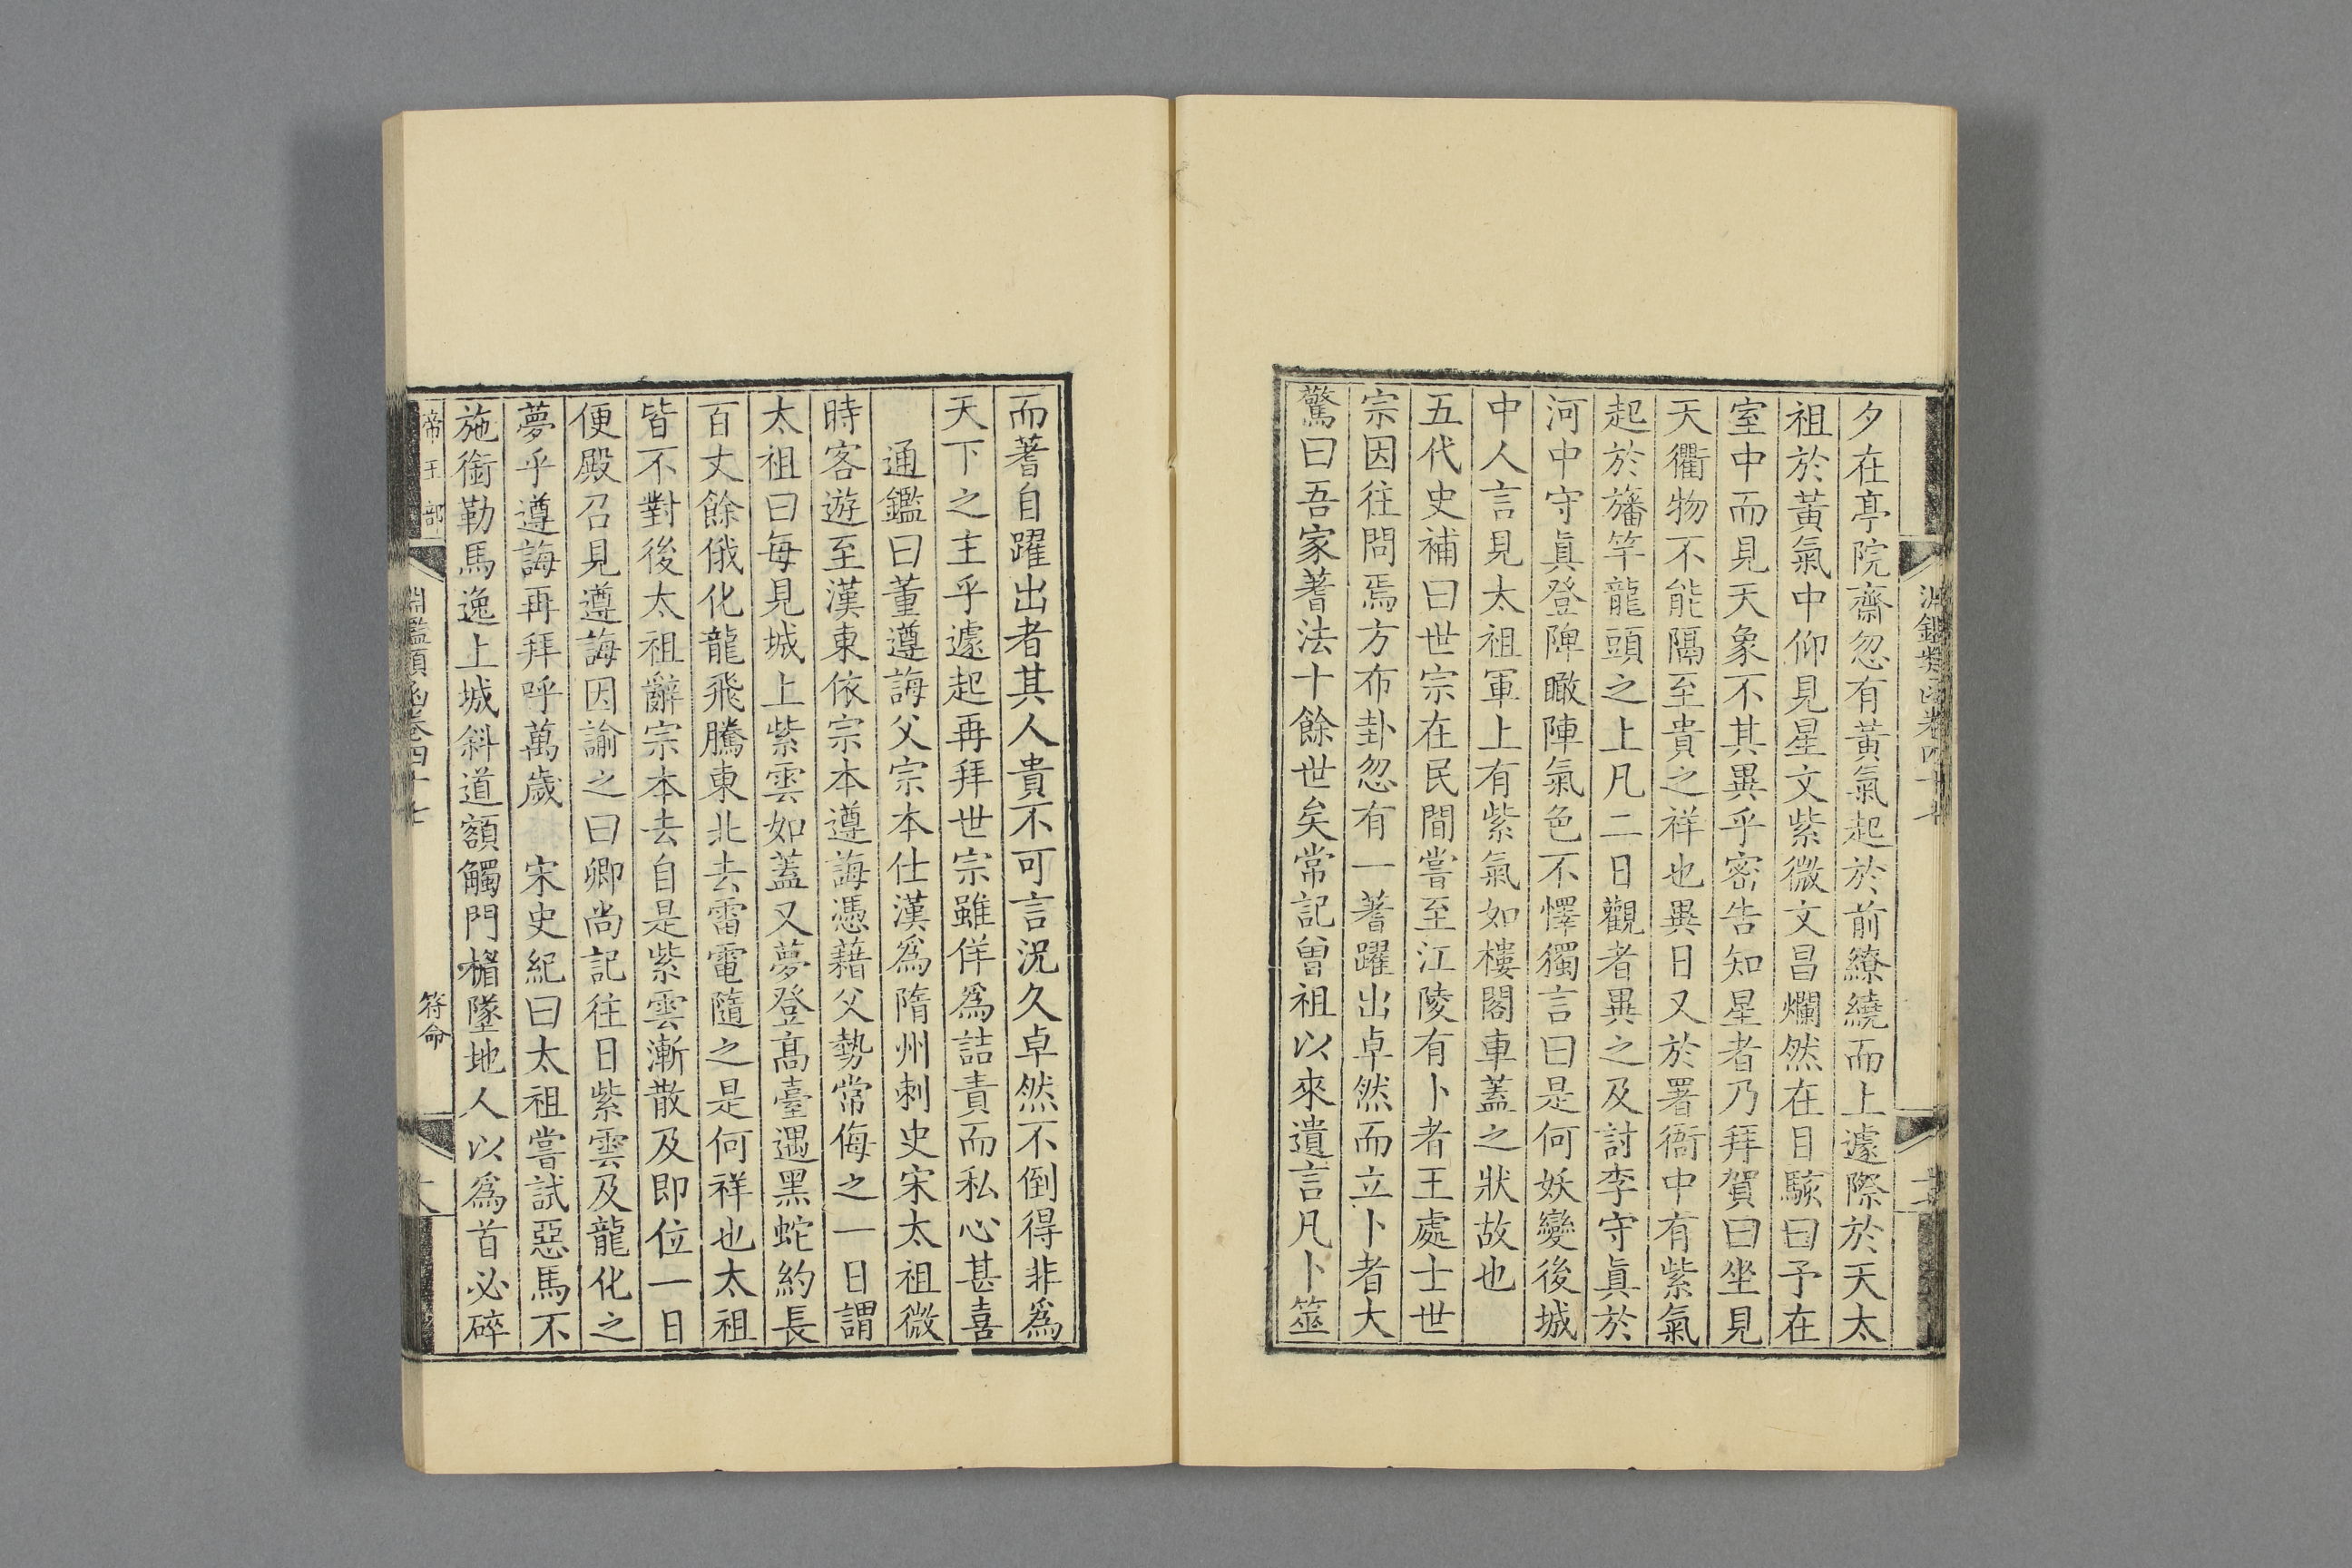 夕在亭院齋忽有黃氣起於前繚繞而上遽際於天太
祖於黃氣中仰見星文紫微文昌爛然在目駭曰予在
室中而見天象不其異乎密告知星者乃拜賀曰坐見
天衢物不能隔至貴之祥也異日又於署衙中有紫氣
起於旛竿龍頭之上凡二日觀者異之及討李守眞於
河中守眞登陴瞰陣氣色不懌獨言曰是何妖變後城
中人言見太祖軍上有紫氣如樓閣車蓋之狀故也
五代史補曰世宗在民間嘗至江陵有卜者王處士世
宗因往問焉方布卦忽有一蓍躍出卓然而立卜者大
驚曰吾家蓍法十餘世矣常記曾祖以來遺言凡卜筮
而蓍自躍出者其人貴不可言況久卓然不倒得非爲
天下之主乎遽起再拜世宗雖佯爲詰責而私心甚喜
通鑑曰董遵誨父宗本仕漢爲隋州刺史宋太祖微
時客遊至漢東依宗本遵誨憑藉父勢常侮之一日謂
太祖曰每見城上紫雲如蓋又夢登高臺遇黑蛇約長
百丈餘俄化龍飛騰東北去雷電隨之是何祥也太祖
皆不對後太祖辭宗本去自是紫雲漸散及即位一日
便殿召見遵誨因諭之曰卿尚記往日紫雲及龍化之
夢乎遵誨再拜呼萬歲 宋史紀曰太祖嘗試惡馬不
施銜勒馬逸上城斜道額觸門楣墜地人以爲首必碎
帝王部
淵鑑類函卷四十七
符命